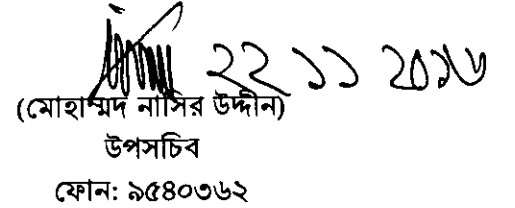 ২২ ১১ ২০১৬
(মোহাম্মদ নাসির উদ্দীন)
উপসচিব
ফোন: ৯৫৪০৩৬২